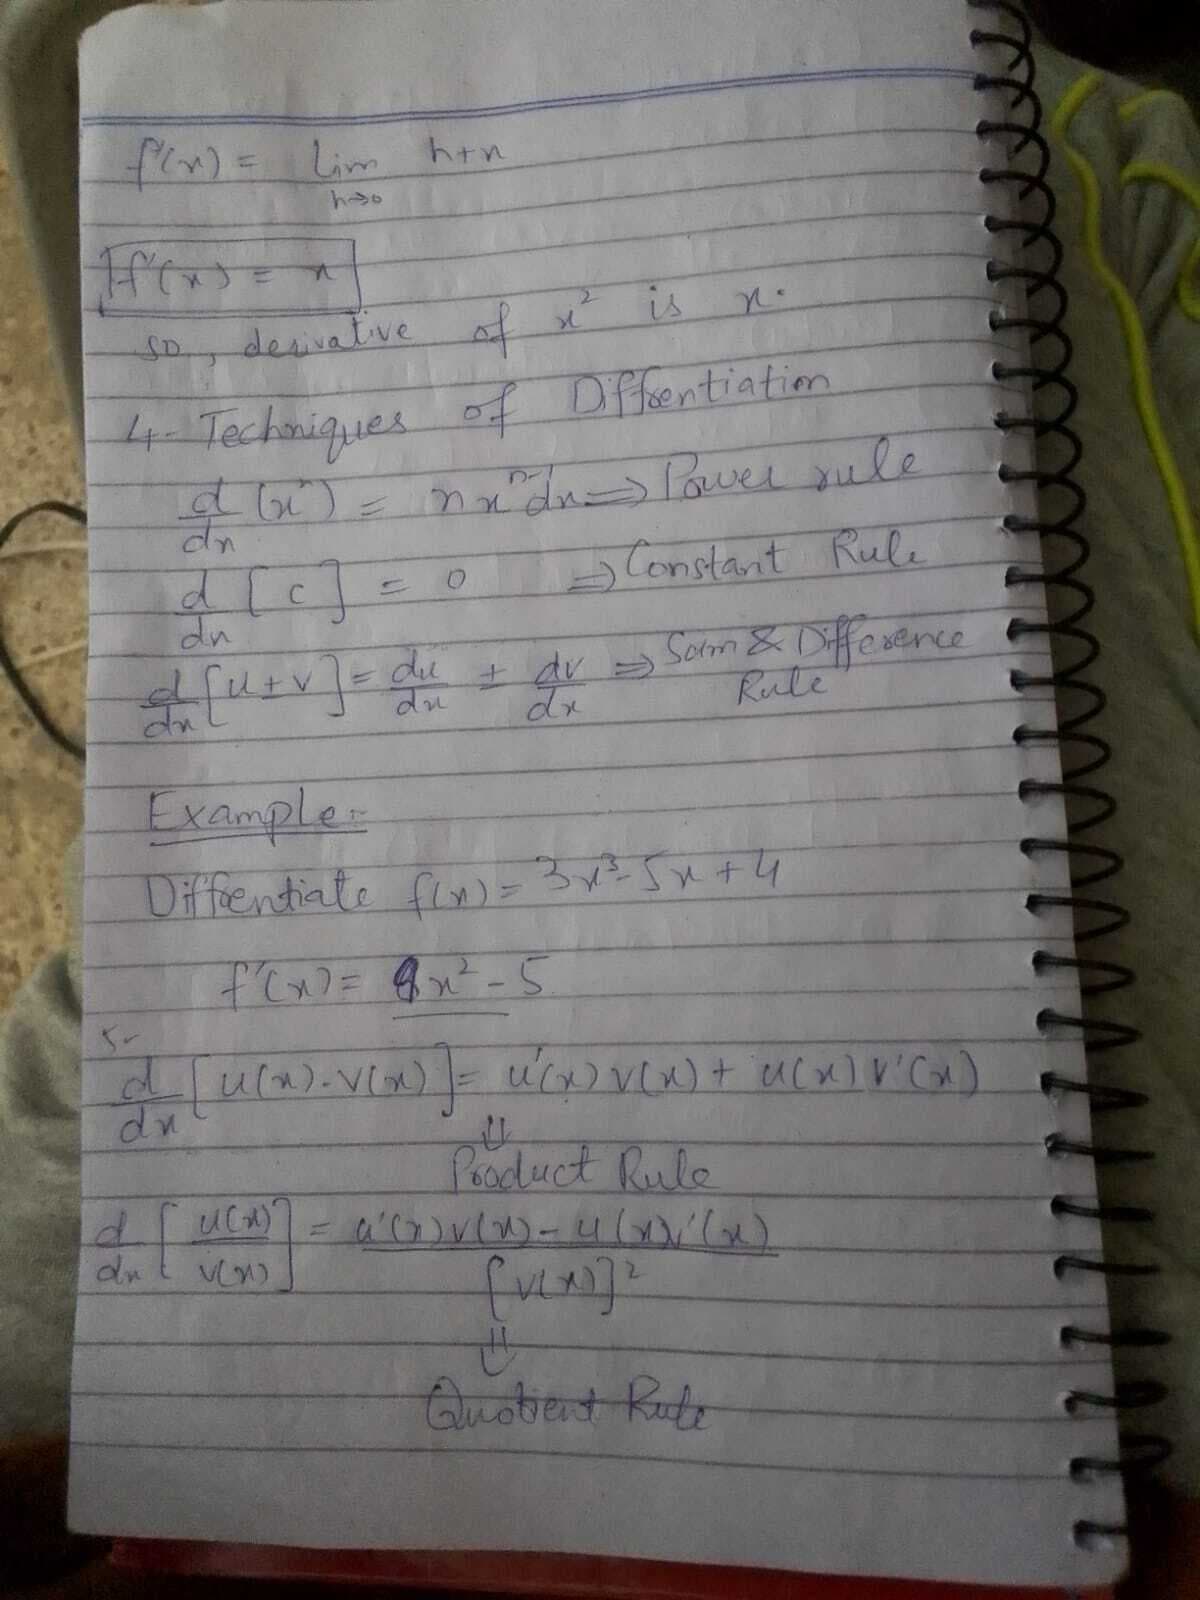 f'(x) = lim h+x
h→0
f'(x) = x
so, derivative of x² is x.
4- Techniques of Diffrentiation
d/dx (xⁿ) = nxⁿ⁻¹dx ⇒ Power rule
d/dx [c] = 0 ⇒ Constant Rule
d/dx [u ± v] = du/dx ± dv/dx ⇒ Sum & Difference
Rule
Example:-
Diffrentiate f(x) = 3x³- 5x + 4
f'(x) = 9x² - 5
5-
d/dx [u(x).v(x)] = u'(x)v(x) + u(x)v'(x)
⇓
Product Rule
d/dx [u(x)/v(x)] = u'(x)v(x) - u(x)v'(x) / [v(x)]²
⇓
Quotient Rule